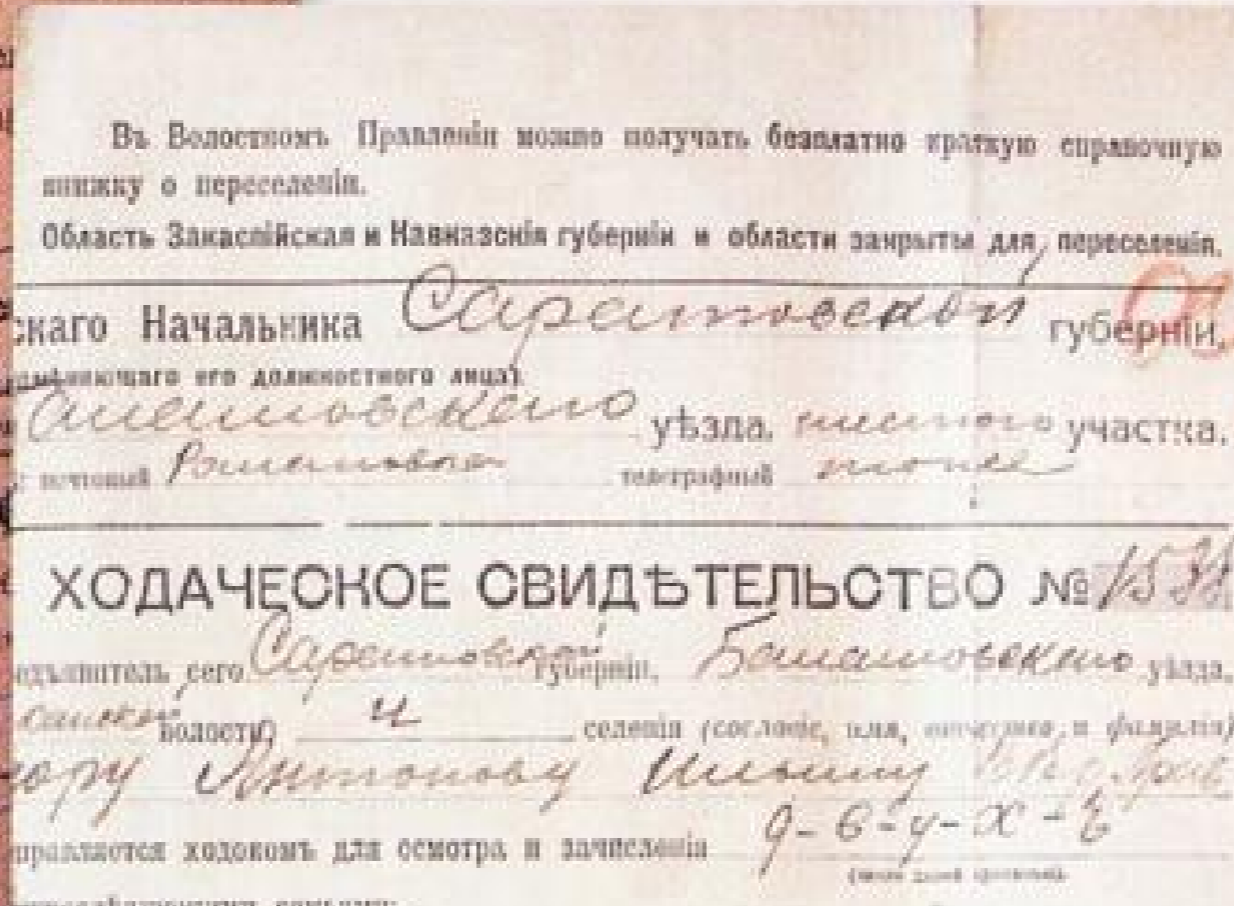 Въ Волостномъ Правленіи можно получать безплатно краткую справочную
книжку о переселеніи.
Область Закаспійская и Кавказскія губерніи и области закрыты для переселенія.
скаго Начальника Саратовской губерніи,
его должностного лица)
уѣзда, участка,
почтовый Романовка телеграфный тоже
ХОДАЧЕСКОЕ СВИДѢТЕЛЬСТВО №
сего Саратовской губерніи, Балашовскаго уѣзда,
волости, селенія (сословіе, имя, отчество и фамилія)
Антонову Ильину
правляется ходокомъ для осмотра и зачисленія д-в-у-х-ъ